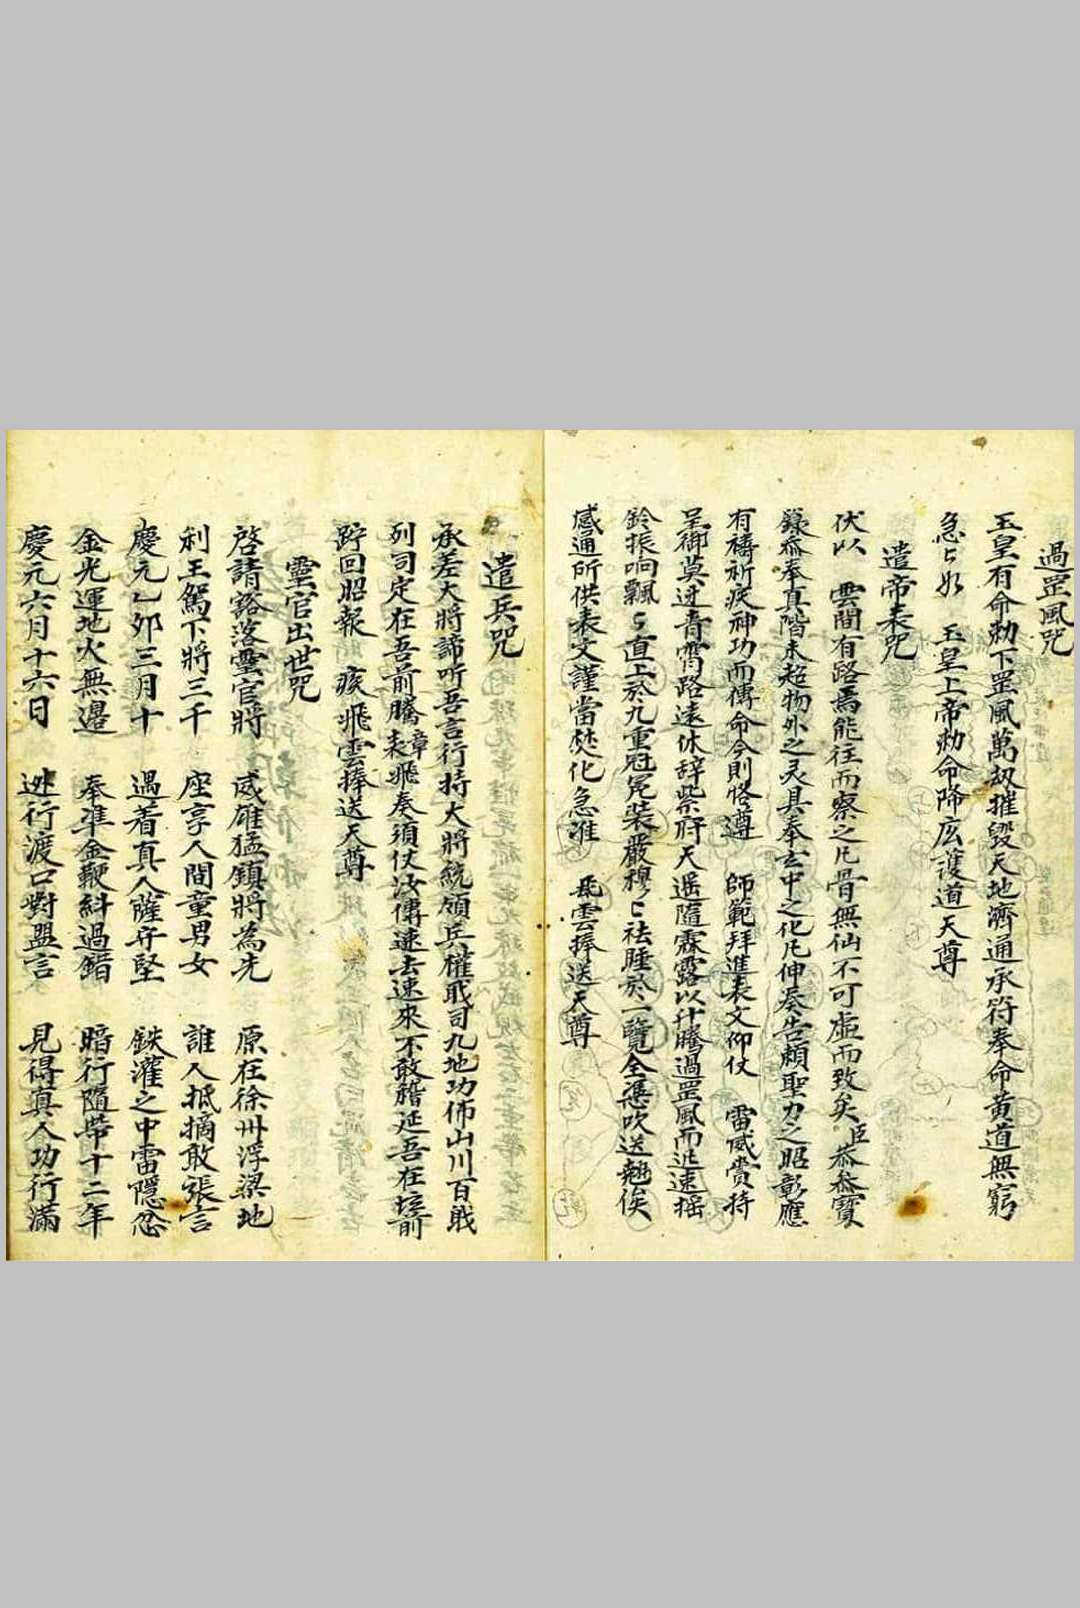 過罡風咒
玉皇有命勅下罡風萬劫摧毀天地濟通承符奉命黃道無窮
急々如　玉皇上帝勅命降庅護道天尊
遣帝表咒
伏以　雲間有路焉能往而察之凡骨無仙不可虛而致矣臣恭叅寳
籙叅奉真階未超物外之灵具奉玄中之化凡伸奏告頼聖力之昭彰應
有禱祈疾神功而傳命令則恪遵　師範拜進表文仰仗　雷威賫持
呈御莫迸青霄路遠休辞紫府天遥隨霖露以廾騰過罡風而迅速摇
鈴振响飄々直上於九重冠冕裝嚴穆々祛睡於一覽全憑吹送翹俟
感通所供表文謹當焚化急准　飛雲捧送天尊
遣兵咒
承差大將諦听吾言行持大將統領兵權戢司九地功佈山川百戢
列司定在吾前騰章表飛奏須仗汝傳速去速來不敢䐡延吾在壇前
貯回昭報　疾飛雲捧送天尊
靈官出世咒
啓請豁落靈官將　威雄猛鎮將為先　原在徐州浮梁地
利王駕下將三千　座享人間童男女　誰人抵摘敢張言
慶元乙卯三月十　過着真人薩守堅　鉄灌之中雷隱忿
金光運地火無邉　奉准金鞭糾過錯　暗行隨帶十二年
慶元六月十六日　迯行渡口對盟言　見得真人功行滿